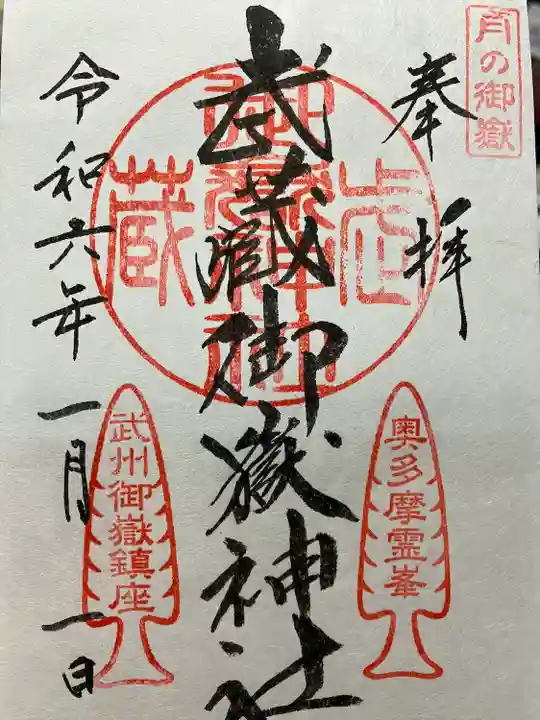 月の御嶽
奉拝
奥多摩霊峯
武蔵御嶽神社
武蔵
御嶽神社
武州御嶽鎮座
令和六年一月一日